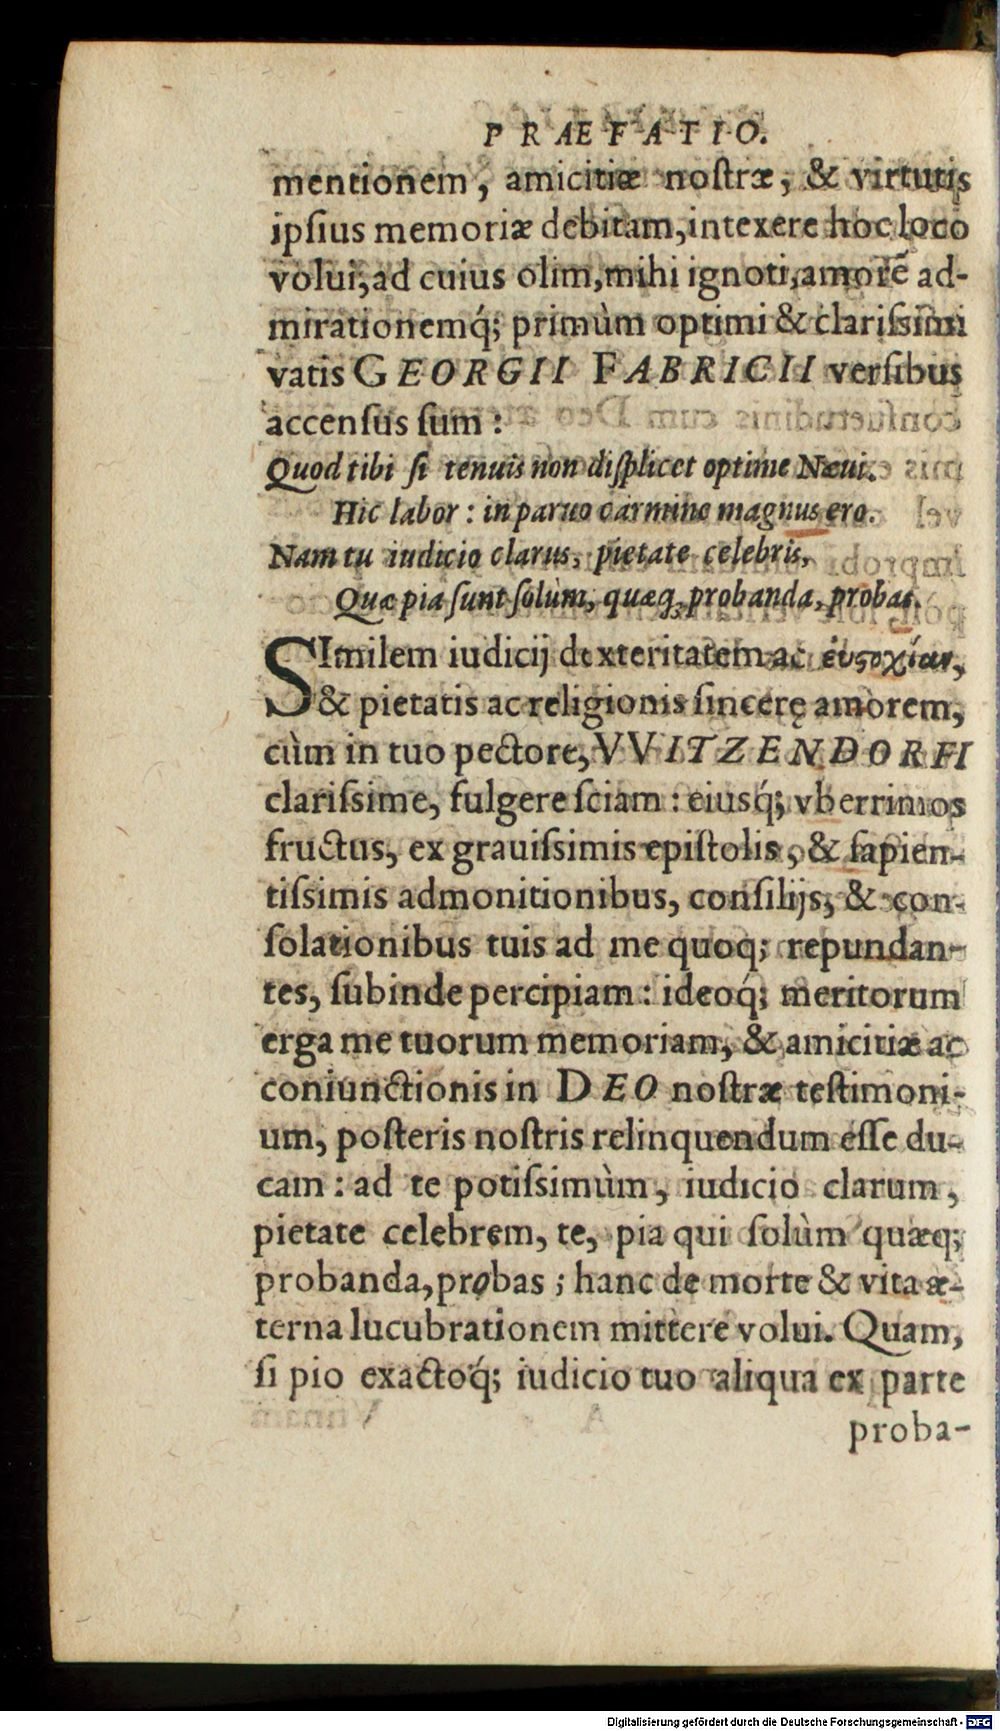 PRAEFATIO.
mentionem, amicitiæ noſtræ, & virtutis
ipſius memoriæ debitam, intexere hoc loco
volui; ad cuius olim, mihi ignoti, amorẽ ad-
mirationemq́; primùm optimi & clariſsimi
vatis GEORGII FABRICII verſibus
accenſus ſum:
Quod tibi ſi tenuis non diſplicet optime Næui.
Hic labor: in paruo carmine magnus ero.
Nam tu iudicio clarus, pietate celebris,
Quæ pia ſunt ſolùm, quæq; probanda, probas.
SImilem iudicij dexteritatem ac εὐϛοχίαν,
& pietatis ac religionis ſincerę amorem,
cùm in tuo pectore, VVITZENDORFI
clariſsime, fulgere ſciam: eiusq́; vberrimos
fructus, ex grauiſsimis epiſtolis, & ſapien-
tiſsimis admonitionibus, conſilijs, & con-
ſolationibus tuis ad me quoq; repundan-
tes, ſubinde percipiam: ideoq́; meritorum
erga me tuorum memoriam, & amicitiæ ac
coniunctionis in DEO noſtræ teſtimoni-
um, poſteris noſtris relinquendum eſſe du-
cam: ad te potiſsimùm, iudicio clarum,
pietate celebrem, te, pia qui ſolùm quæq;
probanda, probas; hanc de morte & vita æ-
terna lucubrationem mittere volui. Quam,
ſi pio exactoq́; iudicio tuo aliqua ex parte
proba-
Digitalisierung gefördert durch die Deutsche Forschungsgemeinschaft - DFG